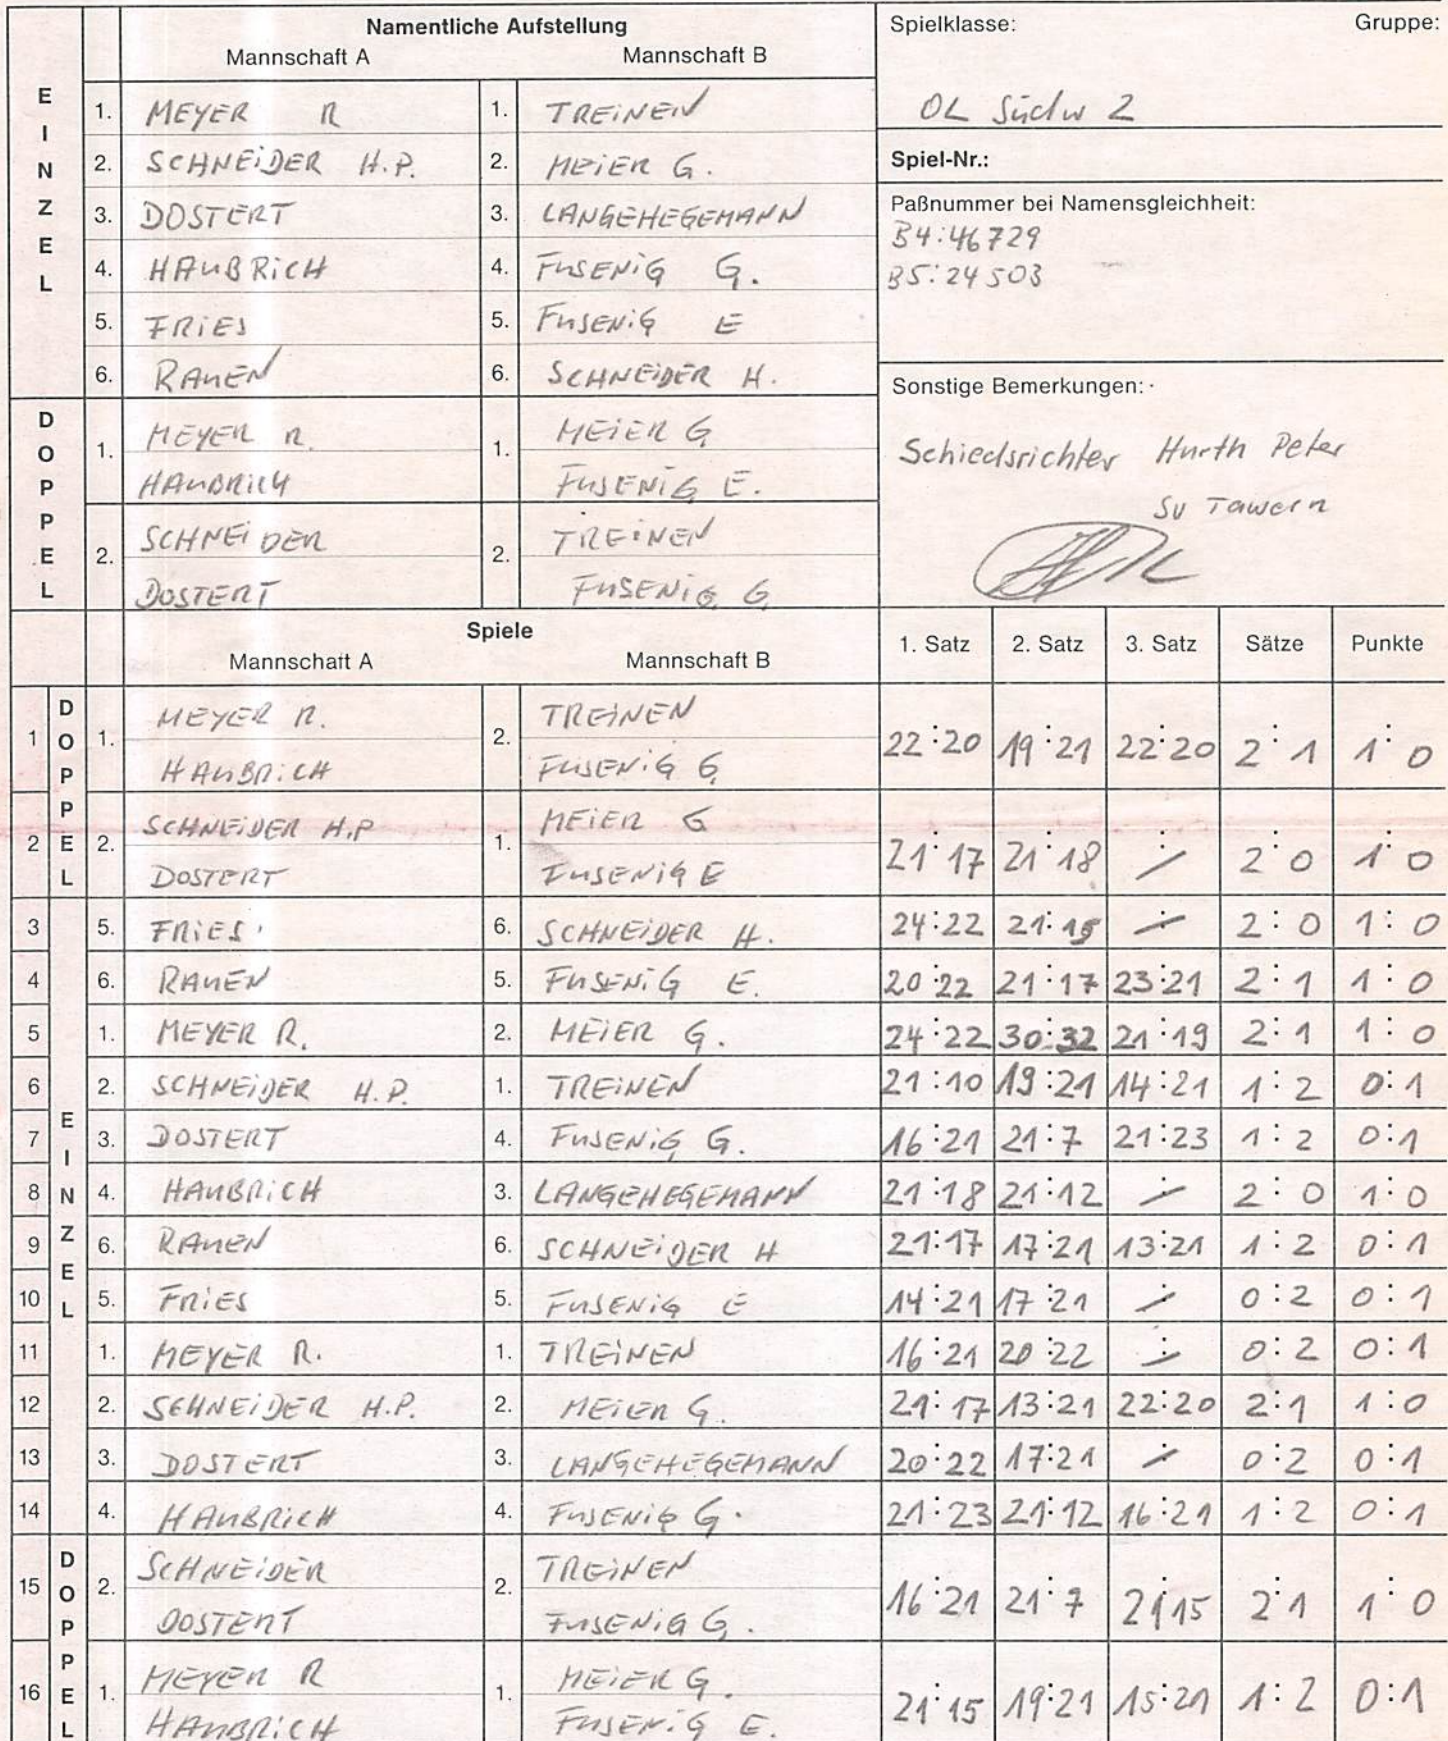 Namentliche Aufstellung
Mannschaft A Mannschaft B
Spielklasse: Gruppe:
OL Südw 2
EINZEL
1. MEYER R 1. TREINEN
2. SCHNEIDER H.P. 2. MEIER G.
3. DOSTERT 3. LANGEHEGEMANN
4. HAUBRICH 4. FUSENIG G.
5. FRIES 5. FUSENIG E
6. RAUEN 6. SCHNEIDER H.
Spiel-Nr.:
Paßnummer bei Namensgleichheit:
B4:46729
B5:24503
DOPPEL
1. MEYER R. 1. MEIER G
HAUBRICH FUSENIG E.
2. SCHNEIDER 2. TREINEN
DOSTERT FUSENIG G
Sonstige Bemerkungen:
Schiedsrichter Hurth Peter
SV Tawern
Spiele
Mannschaft A Mannschaft B 1. Satz 2. Satz 3. Satz Sätze Punkte
DOPPEL
1 1. MEYER R. 2. TREINEN
HAUBRICH FUSENIG G 22:20 19:21 22:20 2:1 1:0
2 2. SCHNEIDER H.P 1. MEIER G
DOSTERT FUSENIG E 21:17 21:18 : 2:0 1:0
EINZEL
3 5. FRIES 6. SCHNEIDER H. 24:22 21:15 : 2:0 1:0
4 6. RAUEN 5. FUSENIG E. 20:22 21:17 23:21 2:1 1:0
5 1. MEYER R. 2. MEIER G. 24:22 30:32 21:19 2:1 1:0
6 2. SCHNEIDER H.P. 1. TREINEN 21:10 19:21 14:21 1:2 0:1
7 3. DOSTERT 4. FUSENIG G. 16:21 21:7 21:23 1:2 0:1
8 4. HAUBRICH 3. LANGEHEGEMANN 21:18 21:12 : 2:0 1:0
9 6. RAUEN 6. SCHNEIDER H 21:17 17:21 13:21 1:2 0:1
10 5. FRIES 5. FUSENIG E 14:21 17:21 : 0:2 0:1
11 1. MEYER R. 1. TREINEN 16:21 20:22 : 0:2 0:1
12 2. SCHNEIDER H.P. 2. MEIER G. 21:17 13:21 22:20 2:1 1:0
13 3. DOSTERT 3. LANGEHEGEMANN 20:22 17:21 : 0:2 0:1
14 4. HAUBRICH 4. FUSENIG G. 21:23 21:12 16:21 1:2 0:1
DOPPEL
15 2. SCHNEIDER 2. TREINEN
DOSTERT FUSENIG G. 16:21 21:7 21:15 2:1 1:0
16 1. MEYER R 1. MEIER G.
HAUBRICH FUSENIG E. 21:15 19:21 15:21 1:2 0:1